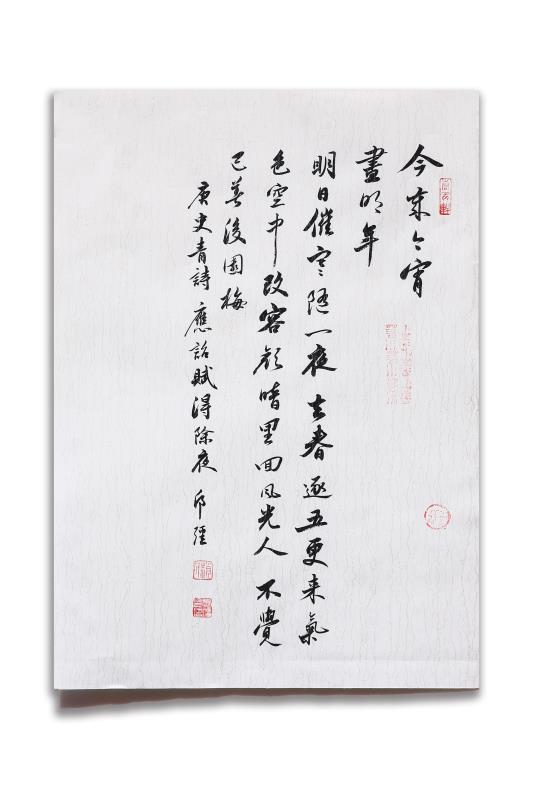 今歲今宵
盡明年
明日催寒随一夜去春逐五更来氣
色空中改容颜暗里回風光人不覺
已著後園梅
唐史青詩應詔賦得除夜 邱瓘